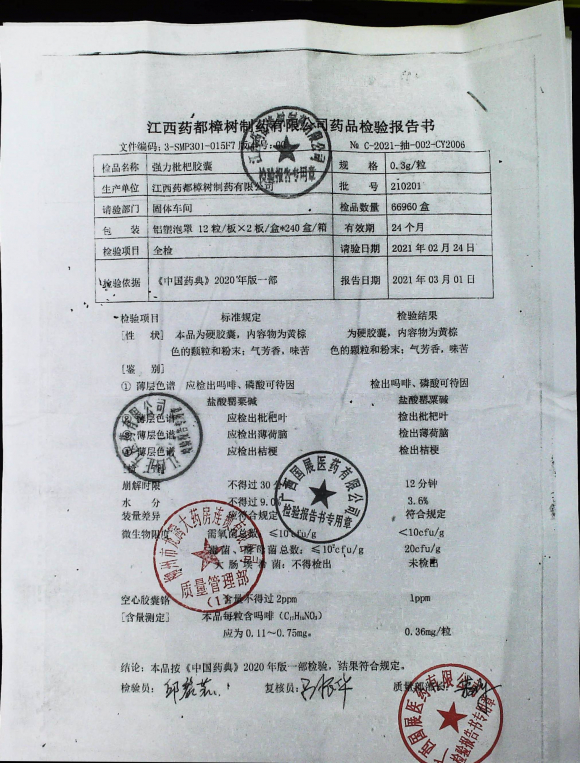 江西药都樟树制药有限公司药品检验报告书
文件编码：3-SMP301-015F7 № C-2021-抽-002-CY2006
检品名称 强力枇杷胶囊 规 格 0.3g/粒
生产单位 江西药都樟树制药有限公司 批 号 210201
请验部门 固体车间 检品数量 66960 盒
包 装 铝塑泡罩 12 粒/板×2 板/盒*240 盒/箱 有效期 24 个月
检验项目 全检 请验日期 2021 年 02 月 24 日
检验依据 《中国药典》2020 年版一部 报告日期 2021 年 03 月 01 日
检验项目 标准规定 检验结果
[性 状] 本品为硬胶囊，内容物为黄棕 为硬胶囊，内容物为黄棕
色的颗粒和粉末；气芳香，味苦 色的颗粒和粉末；气芳香，味苦
[鉴 别]
① 薄层色谱 应检出吗啡、磷酸可待因 检出吗啡、磷酸可待因
盐酸罂粟碱 盐酸罂粟碱
薄层色谱 应检出枇杷叶 检出枇杷叶
薄层色谱 应检出薄荷脑 检出薄荷脑
薄层色谱 应检出桔梗 检出桔梗
崩解时限 不得过 30 分 12 分钟
水 分 不得过 9.0 3.6%
装量差异 应符合规定 符合规定
微生物限度 需氧菌总数：≤10 cfu/g <10cfu/g
霉菌、酵母菌总数：≤10²cfu/g 20cfu/g
大肠埃希菌：不得检出 未检出
空心胶囊铬 含量不得过 2ppm 1ppm
[含量测定] 本品每粒含吗啡（C₁₇H₁₉NO₃）
应为 0.11～0.75mg。 0.36mg/粒
结论：本品按《中国药典》2020 年版一部检验，结果符合规定。
检验员： 复核员： 质量
检验报告书专用章
广西国展医药有限公司
检验报告书专用章
质量管理部
(1)
西国展医药有限公司
检验报告书专用章